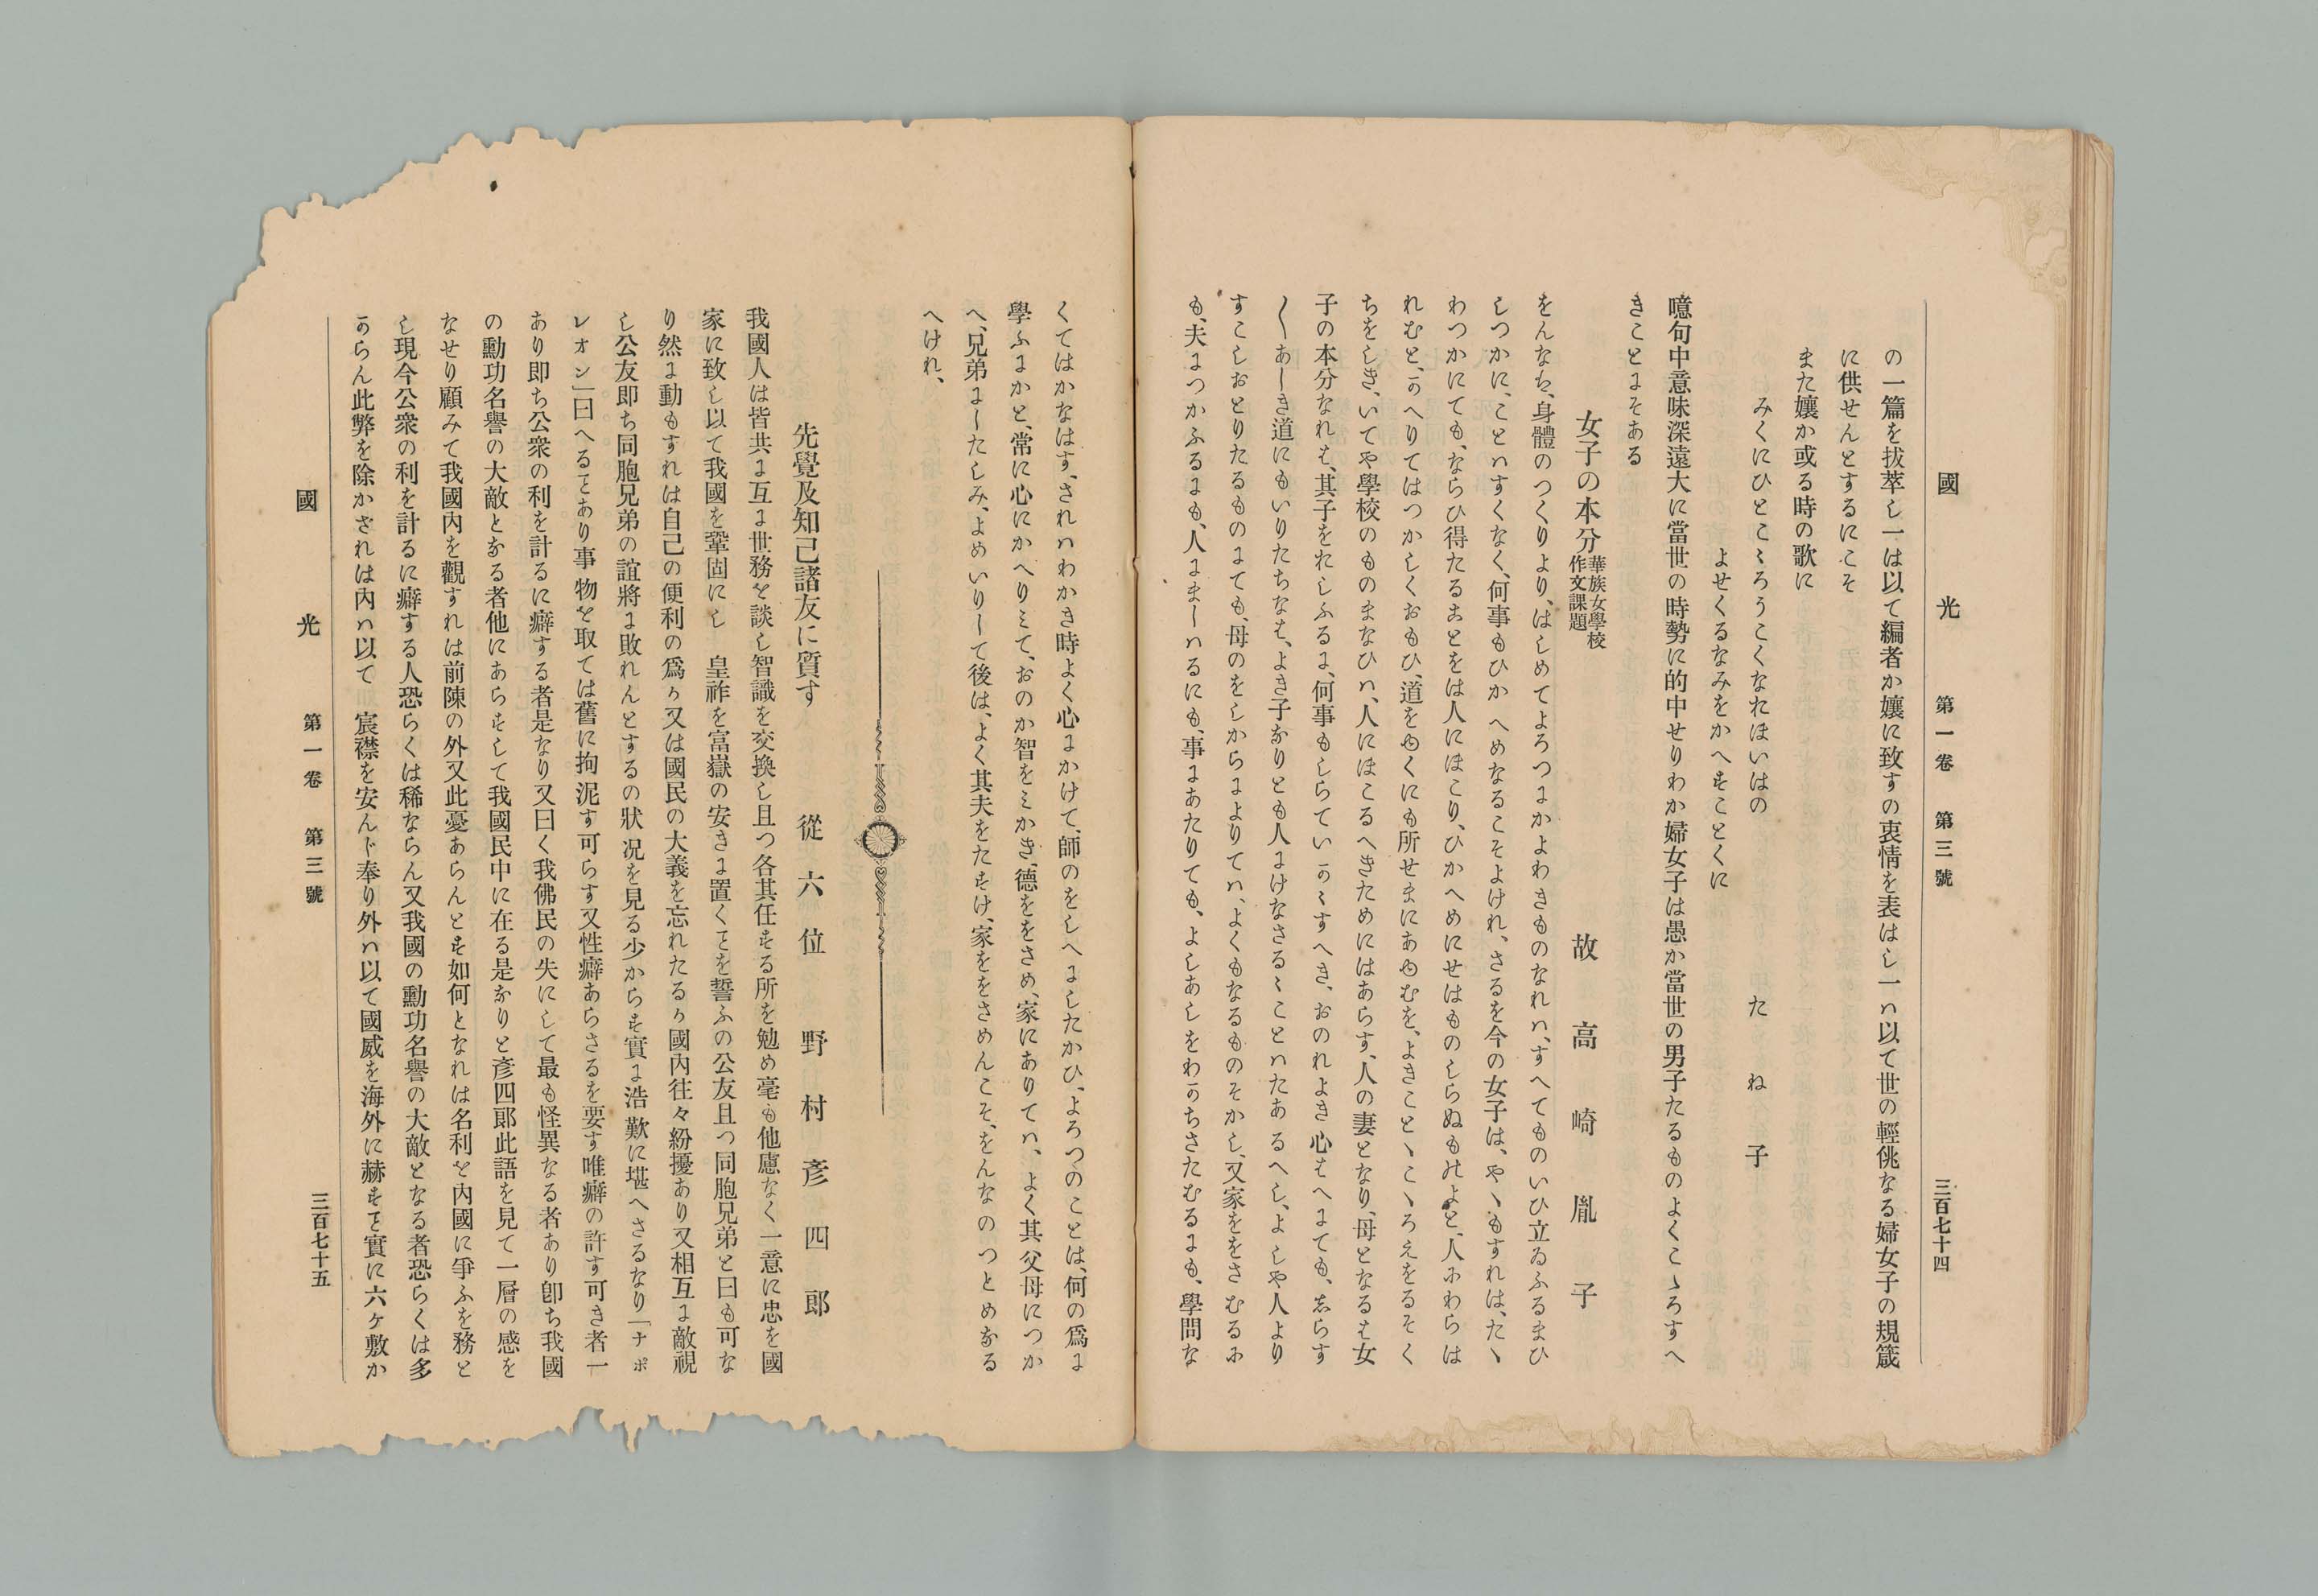 國光 第一卷 第三號 三百七十四
の一篇を拔萃し一は以て編者か孃に致すの衷情を表はし一ハ以て世の輕佻なる婦女子の規箴
に供せんとするにこそ
また孃か或る時の歌に
たね子
みくにひとこゝろうこくなれほいはの
よせくるなみをかへすことくに
噫句中意味深遠大に當世の時勢に的中せりわか婦女子は愚か當世の男子たるものよくこゝろすへ
きことにそある
女子の本分 華族女學校作文課題 故高崎胤子
をんなハ、身體のつくりより、はしめてよろつにかよわきものなれハ、すへてものいひ立ゐふるまひ
しつかに、ことハすくなく、何事もひかへめなるこそよけれ、さるを今の女子は、やゝもすれは、たゝ
わつかにても、ならひ得たることをは人にほこり、ひかへめにせはものしらぬものよと、人にわらは
れむと、かへりてはつかしくおもひ、道をゆくにも所せまにあゆむを、よきことゝこゝろえをるそく
ちをしき、いてや學校のものまなひハ、人にほこるへきためにはあらす、人の妻となり、母となるは女
子の本分なれは、其子をおしふるに、何事もしらていかゝすへき、おのれよき心はへにても、志らす
〳〵あしき道にもいりたちなは、よき子なりとも人にけなさるゝことハたあるへし、よしや人より
すこしおとりたるものにても、母のをしからによりてハ、よくもなるものそかし、又家ををさむるに
も、夫につかふるにも、人にましハるにも、事にあたりても、よしあしをわかちさたむるにも、學問な
くてはかなはす、されハわかき時よく心にかけて、師のをしへにしたかひ、よろつのことは、何の爲に
學ふにかと、常に心にかへりみて、おのか智をみかき、德ををさめ、家にありてハ、よく其父母につか
へ、兄弟にしたしみ、よめいりして後は、よく其夫をたすけ、家ををさめんこそ、をんなのつとめなる
へけれ、
先覺及知己諸友に質す 從六位 野村彥四郎
我國人は皆共に互に世務を談し智識を交換し且つ各其任する所を勉め毫も他慮なく一意に忠を國
家に致し以て我國を鞏固にし 皇祚を富嶽の安きに置くことを誓ふの公友且つ同胞兄弟と曰も可な
り然に動もすれは自己の便利の爲か又は國民の大義を忘れたるか國內往々紛擾あり又相互に敵視
し公友即ち同胞兄弟の誼將に敗れんとするの狀況を見る少からす實に浩歎に堪へさるなり「ナポ
レオン」曰へることあり事物を取ては舊に拘泥す可らす又性癖あらさるを要す唯癖の許す可き者一
あり即ち公衆の利を計るに癖する者是なり又曰く我佛民の失にして最も怪異なる者あり卽ち我國
の勳功名譽の大敵となる者他にあらすして我國民中に在る是なりと彥四郞此語を見て一層の感を
なせり顧みて我國內を觀すれは前陳の外又此憂あらんとす如何となれは名利を內國に爭ふを務と
し現今公衆の利を計るに癖する人恐らくは稀ならん又我國の勳功名譽の大敵となる者恐らくは多
からん此弊を除かされは內ハ以て 宸襟を安んじ奉り外ハ以て國威を海外に赫すこと實に六ケ敷か
國光 第一卷 第三號 三百七十五